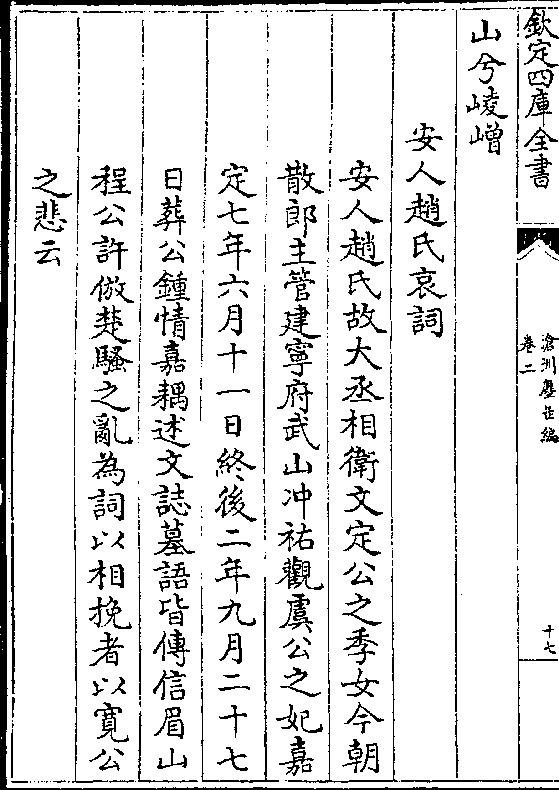 欽定四庫全書
滄洲塵缶編
卷二
十七
山兮崚嶒
安人趙氏哀詞
安人趙氏故大丞相衛文定公之季女今朝
散郎主管建寧府武山沖祐觀虞公之妃嘉
定七年六月十一日終後二年九月二十七
日葬公鍾情嘉耦述文誌墓語皆傳信眉山
程公許倣楚騷之亂為詞以相挽者以寛公
之悲云